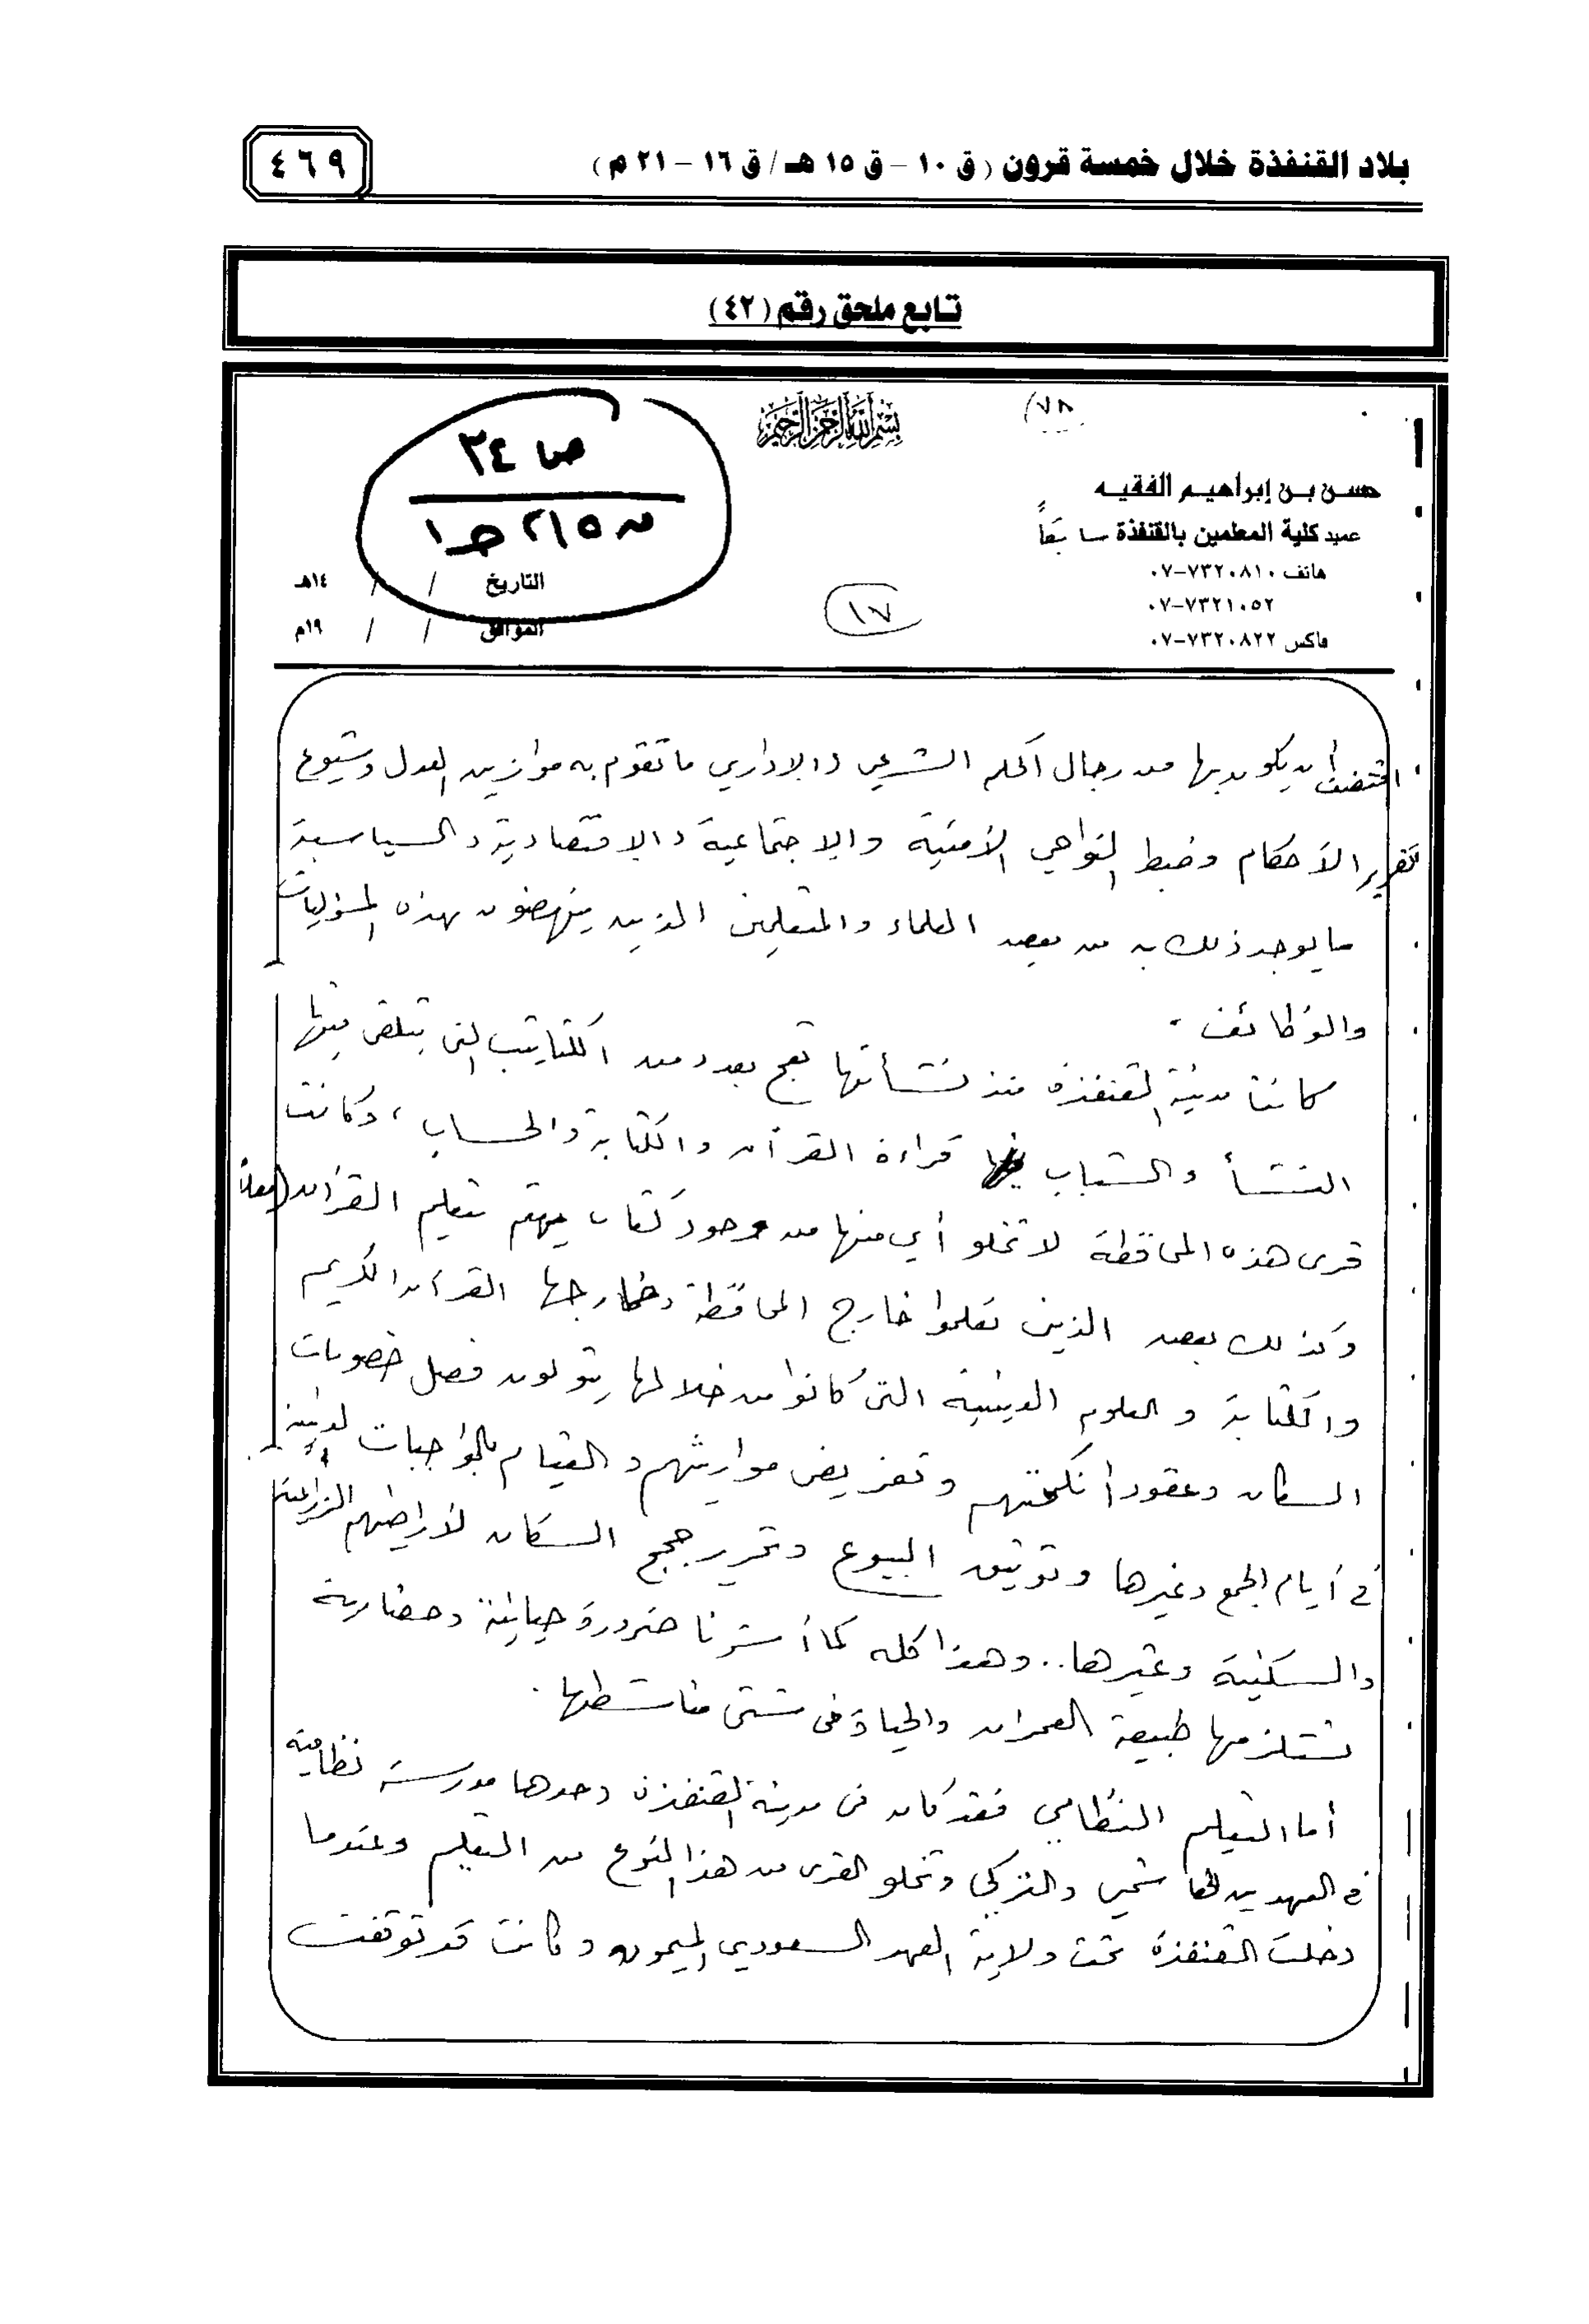 بلاد القنفذة خلال خمسة قرون (ق ١٠ - ق ١٥ هـ / ق ١٦ - ٢١ م)
٤٦٩
تابع ملحق رقم (٤٢)
بسم الله الرحمن الرحيم
(٧٨
ص ٣٤
س ٢١٥ ج١
حسن بن إبراهيم الفقيه
عميد كلية المعلمين بالقنفذة سابقاً
هاتف ٠٧-٧٣٢٠٨١٠
٠٧-٧٣٢١٠٥٢
فاكس ٠٧-٧٣٢٠٨٢٢
١٧
التاريخ / / ١٤هـ
الموافق / / ١٩م
اقتضت أن يكون بها من رجال الحكم الشرعي والإداري ما تقوم به موازين العدل وشيوع
تقرير الأحكام وضبط النواحي الأمنية والاجتماعية والاقتصادية والسياسية
ما يوجد ذلك به من بعض العلماء والمتعلمين الذين ينهضون بهذه المسؤليات
والوظائف .
كانت مدينة القنفذة منذ نشأتها تعج بعدد من الكتاتيب التي يتلقى فيها
النشأ والشباب قراءة القرآن والكتابة والحساب ، وكانت
قرى هذه المحافظة لا تخلو أي منها من وجود كتاب يهتم بتعليم القرآن
وكذلك بعض الذين تعلموا خارج المحافظة وخارجها القرآن الكريم
والكتابة والعلوم الدينية التي كانوا من خلالها يتولون فصل خصومات
السكان وعقود أنكحتهم وتفريض مواريثهم والقيام بالواجبات الدينية
في أيام الجمع وغيرها وتوثيق البيوع وتحرير حجج السكان لأراضيهم الزراعية
والسكنية وغيرها .. وهذا كله كما أشرنا ضرورة حياتية وحضارية
تستلزمها طبيعة العمران والحياة في شتى مناشطها .
أما التعليم النظامي فقد كان في مدينة القنفذة وحدها مدرسة نظامية
في العهدين الهاشمي والتركي وتخلو القرى من هذا النوع من التعليم وعندما
دخلت القنفذة تحت ولاية العهد السعودي الميمون وكانت قد توقفت